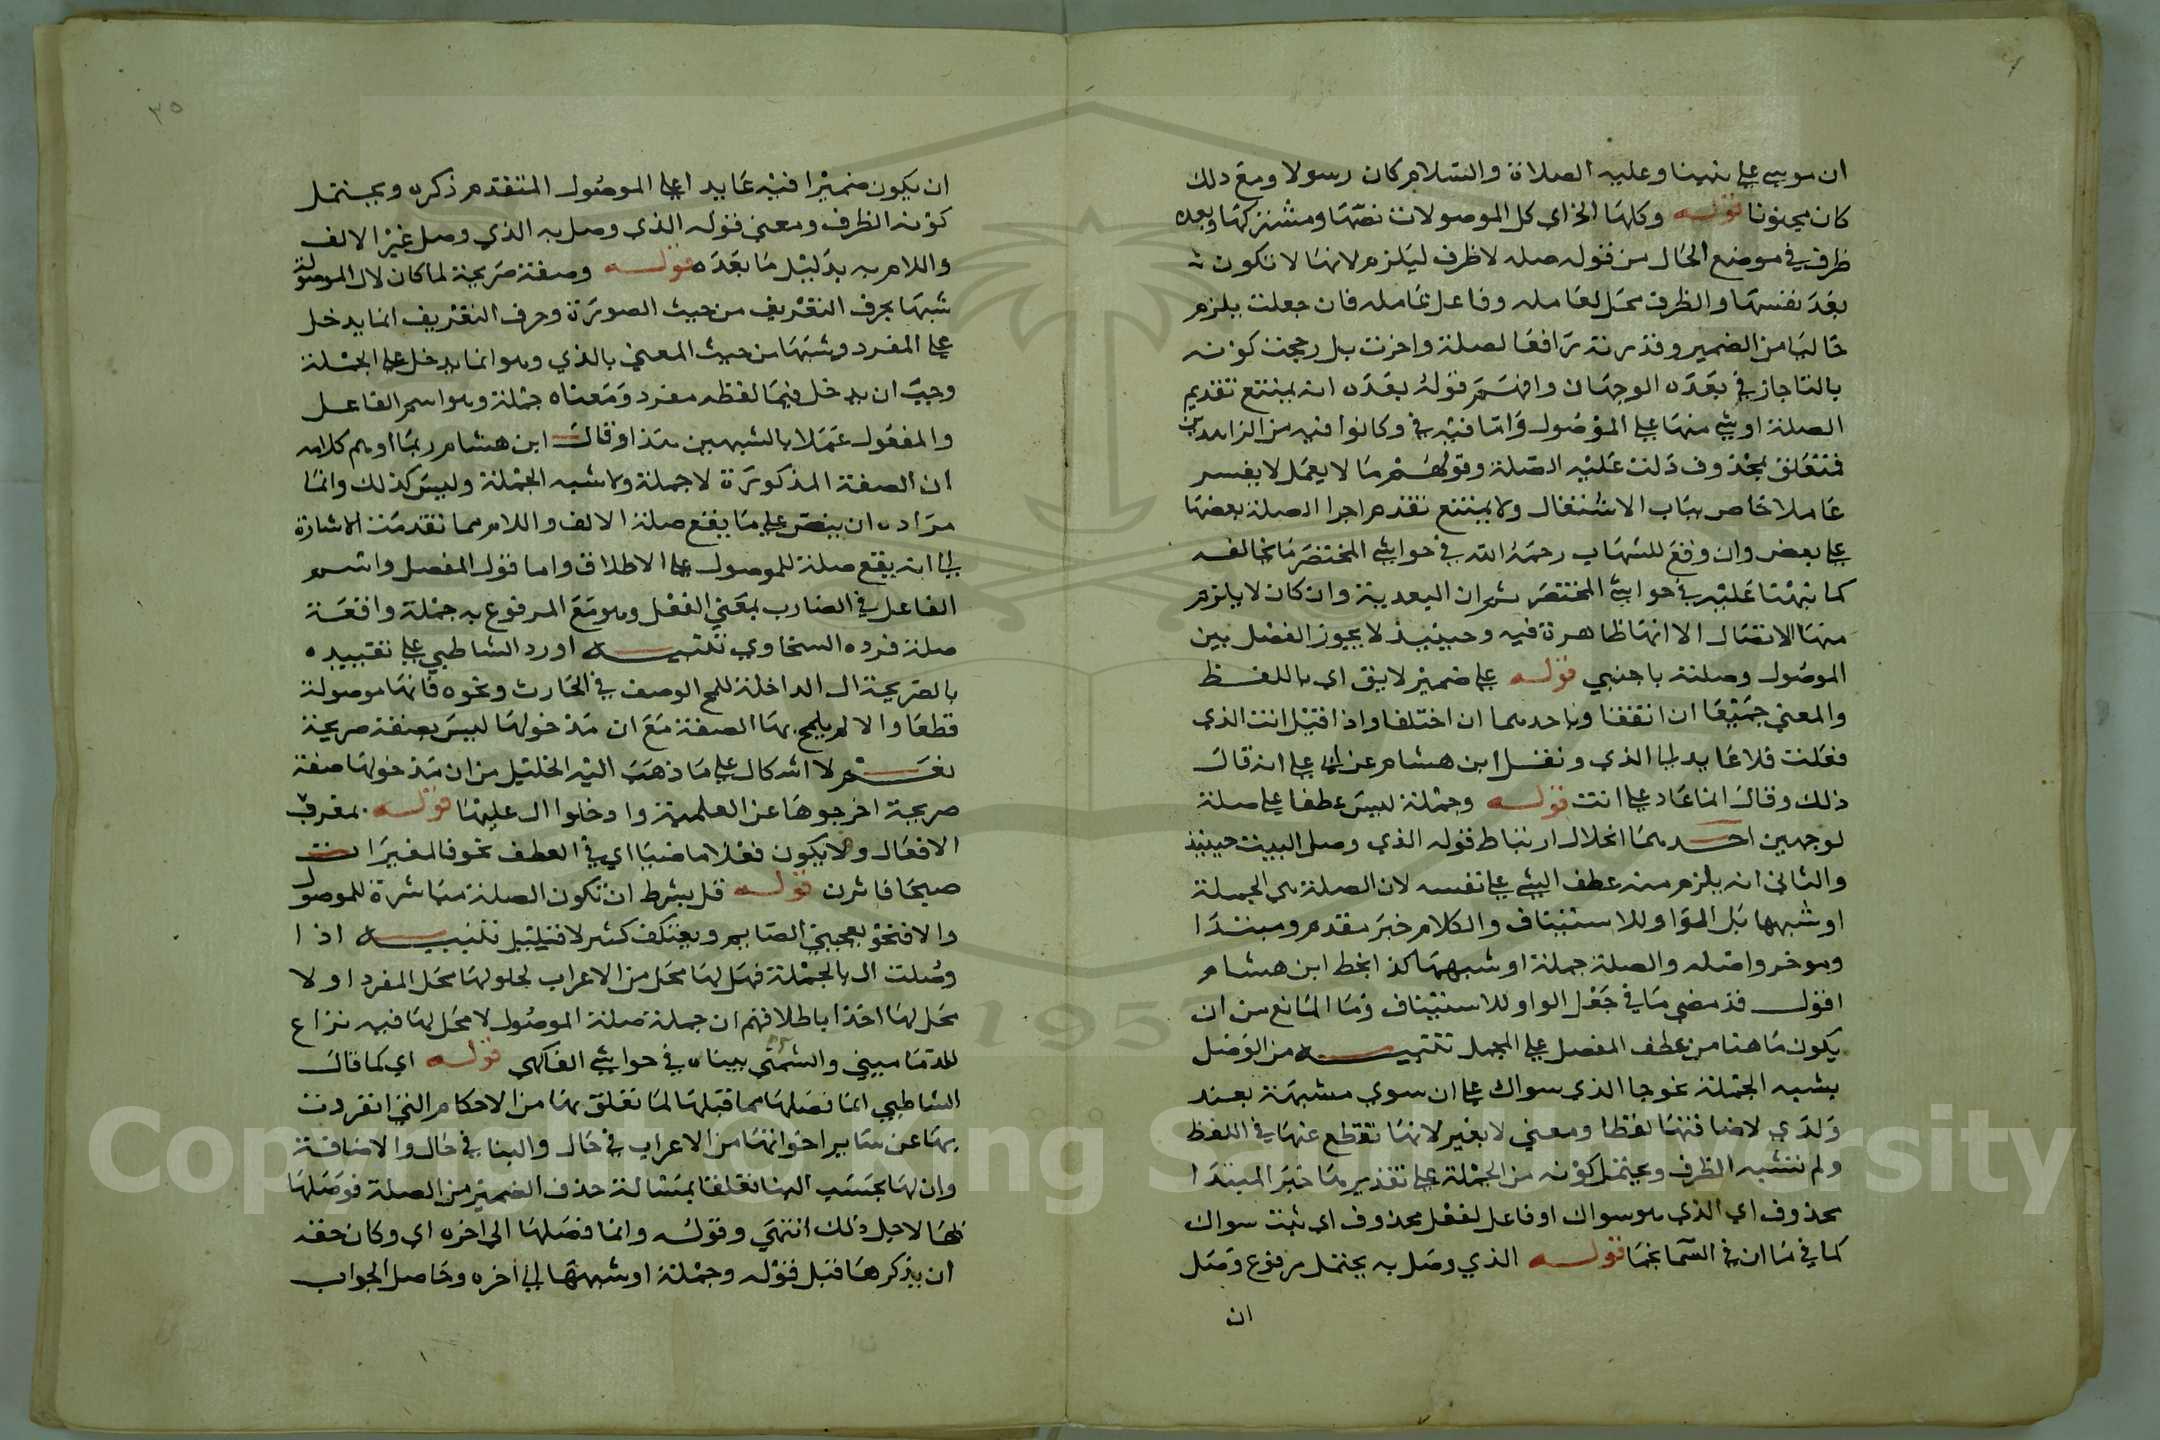 ان موسى على نبينا وعليه الصلاة والسلام كان رسولا ومع ذلك
كان مجنونا قوله وكلها الخ اي كل الموصولات نصها ومشتركها وبعده
ظرف في موضع الحال من قوله صله لا ظرف ليلزم لانها لا تكون
بعد نفسها والظرف محل لعامله وفاعل عامله فان جعلت يلزم
خاليا من الضمير وقدرته رافعا لصلة واخرت بل رجحت كونه
بالتا جاز في بعده الوجهان وافهم قوله بعده انه يمتنع تقديم
الصلة او شي منها على الموصول واما فيه في وكانوا فيه من الزاهدين
فتتعلق بمحذوف دلت عليه الصلة وقولهم ما لا يعمل لا يفسر
عاملا خاص بباب الاشتغال ولا يمتنع تقدم اجزا الصلة بعضها
على بعض وان وقع للشهاب رحمه الله في حواشي المختصر ما يخالفه
كما نبهنا عليه في حواشي المختصر ثم ان البعدية وان كان لا يلزم
منها الاتصال الا انها ظاهرة فيه وحينيذ لا يجوز الفصل بين
الموصول وصلته باجنبي قوله على ضمير لايق اي باللفظ
والمعني جميعا ان اتفقا وباحدهما ان اختلفا واذا قيل انت الذي
فعلت فلا عايد الى الذي ونقل ابن هشام عن على انه قال
ذلك وقال انما عاد على انت قوله وجملة ليس عطفا على صلة
لوجهين احدهما انحلال ارتباط قوله الذي وصل البيت حينيذ
والثاني انه يلزم منه عطف الشي على نفسه لان الصلة هي الجملة
او شبهها بل الواو للاستيناف والكلام خبر مقدم ومبتدا
وموخر واصله والصلة جملة او شبهها كذا بخط ابن هشام
اقول قد مضى ما في جعل الواو للاستيناف وما المانع من ان
يكون ما هنا من عطف المفصل على المجمل تتميه من الوصل
بشبه الجملة نحو جا الذي سواك على ان سوي مشبهة بعند
ولدي لاضافتها لفظا ومعني لا بغير لانها تقطع عنها في اللفظ
ولم تشبه الظرف ويحتمل كونه من الجملة على تقدير ما خبر المبتدا
محذوف اي الذي هو سواك او فاعل لفعل محذوف اي ثبت سواك
كما في ما ان في السما نجما قوله الذي وصل به يحتمل مرفوع وصل
ان
٣٥
ان يكون ضميرا فيه عايدا على الموصول المتقدم ذكره ويحتمل
كونه الظرف ومعني قوله الذي وصل به الذي وصل غير الالف
واللام به بدليل ما بعده قوله وصفة صريحة لما كان لال الموصولة
شبها بحرف التعريف من حيث الصورة وحرف التعريف انما يدخل
على المفرد وشبها من حيث المعني بالذي وهو انما يدخل على الجملة
وجب ان يدخل فيما لفظه مفرد ومعناه جملة وهو اسم الفاعل
والمفعول عملا بالشبهين هذا وقال ابن هشام ربما اوهم كلامه
ان الصفة المذكورة لا جملة ولا شبه الجملة وليس كذلك وانما
مراده ان ينص على ما يقع صلة الالف واللام مما تقدمت الاشارة
الى انه يقع صلة للموصول على الاطلاق واما قول المفصل واسم
الفاعل في الضارب بمعني الفعل وهو مع المرفوع به جملة واقعة
صلة فرده السخاوي تتميه اورد الشاطبي على تقييده
بالصريحة ال الداخلة للمح الوصف في الحارث ونحوه فانها موصولة
قطعا والا لم يلمح بها الصفة مع ان مدخولها ليس بصفة صريحة
نعم لا اشكال على ما ذهب اليه الخليل من ان مدخولها صفة
صريحة اخرجوها عن العلمية وادخلوا ال عليها قوله بمعرب
الافعال ولا يكون فعلا ماضيا اي في العطف نحو فالمغيرات
صبحا فاثرن قوله قل يشرط ان تكون الصلة مباشرة للموصول
والا فنحو يعجبني الصايم ويعتكف كثير لا قليل تنبيه اذا
وصلت ال بالجملة فهل لها محل من الاعراب لحلولها محل المفرد او لا
محل لها اخذا باطلاقهم ان جملة صلة الموصول لا محل لها فيه نزاع
للدماميني والشمني بيناه في حواشي الفاكهي قوله اي كما قال
الشاطبي انما فصلها مما قبلها لما تعلق بها من الاحكام التي انفردت
بها عن ساير اخواتها من الاعراب في حال والبنا في حال والاضافة
وان لها بحسب البنا تعلقا بمسالة حذف الضمير من الصلة فوصلها
بها لاجل ذلك انتهي وقوله وانما فصلها الى اخره اي وكان حقه
ان يذكرها قبل قوله وجملة او شبهها الى اخره وحاصل الجواب
1957
Copyright © King Saud University